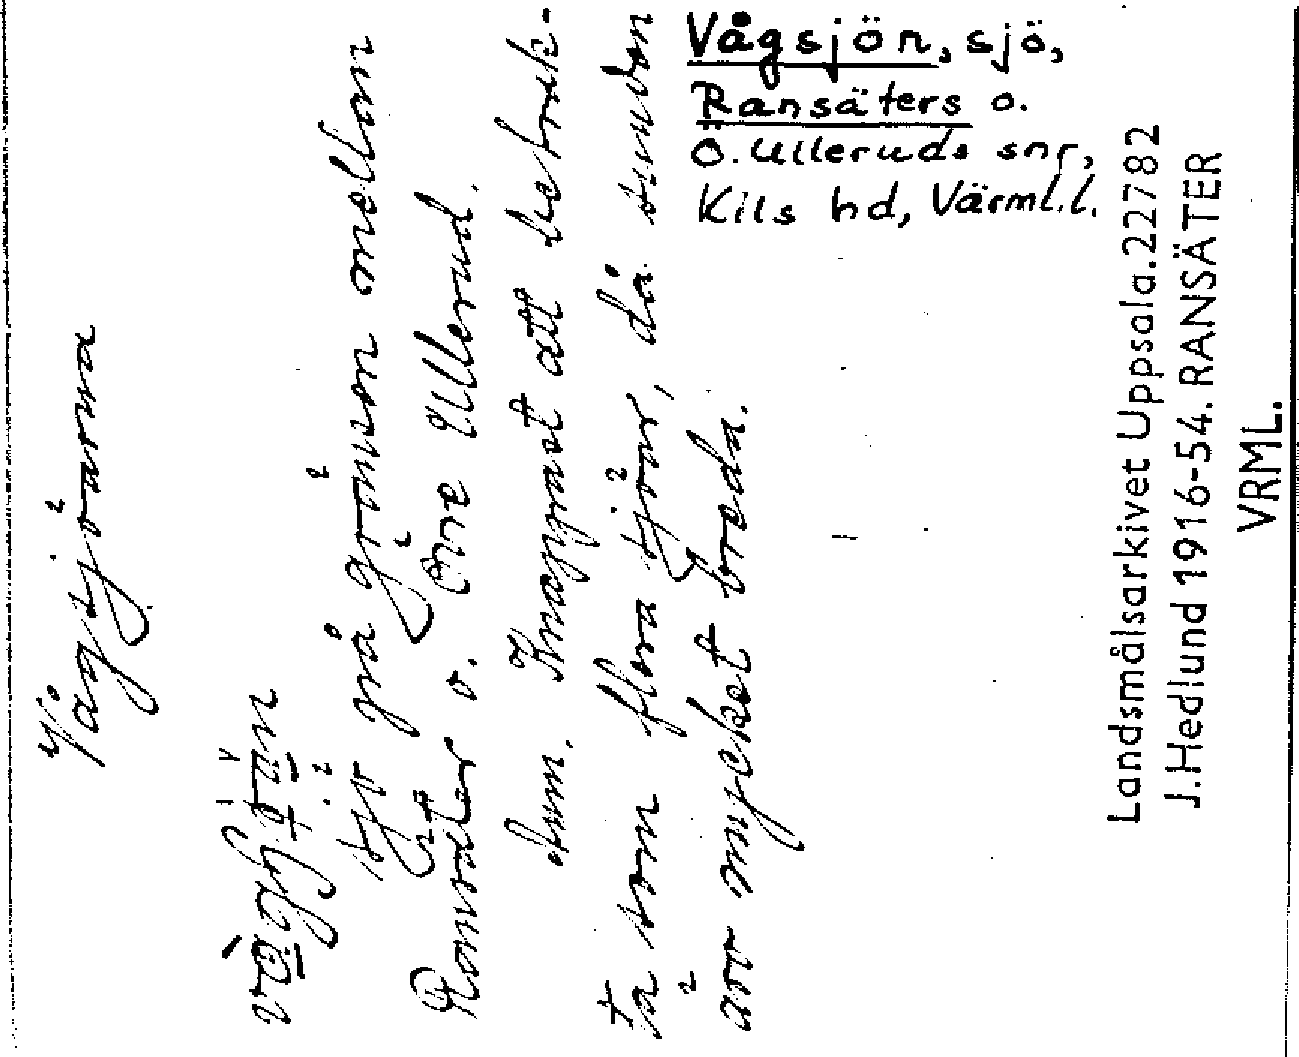 Vågsjön, sjö,
Ransäters o.
Ö. Ulleruds snr,
Kils hd, Värml.l.
Vågsjöarna
Sjö på gränsen mellan
Ransäter o. Övre Ullerud.
Anm. Knappast att betrak-
ta som flera sjöar, då sunden
äro mycket breda.
Landsmålsarkivet Uppsala.22782
J.Hedlund 1916-54. RANSÄTER
VRML.